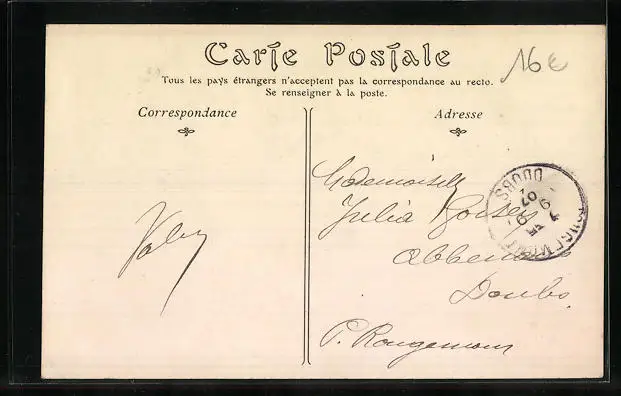 Carte Postale
16€
Tous les pays étrangers n'acceptent pas la correspondance au recto.
Se renseigner à la poste.
Correspondance
Adresse
Mademoiselle
Julia
Abbenans
Doubs
P. Rougemont
ROUGEMONT
DOUBS
07